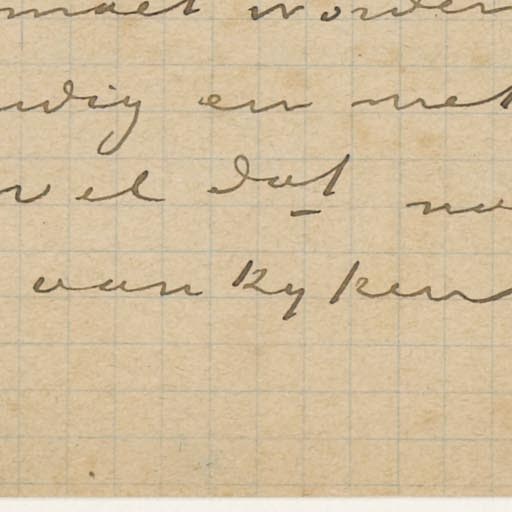 moet worden
udig en met
wel dat na
van kyken